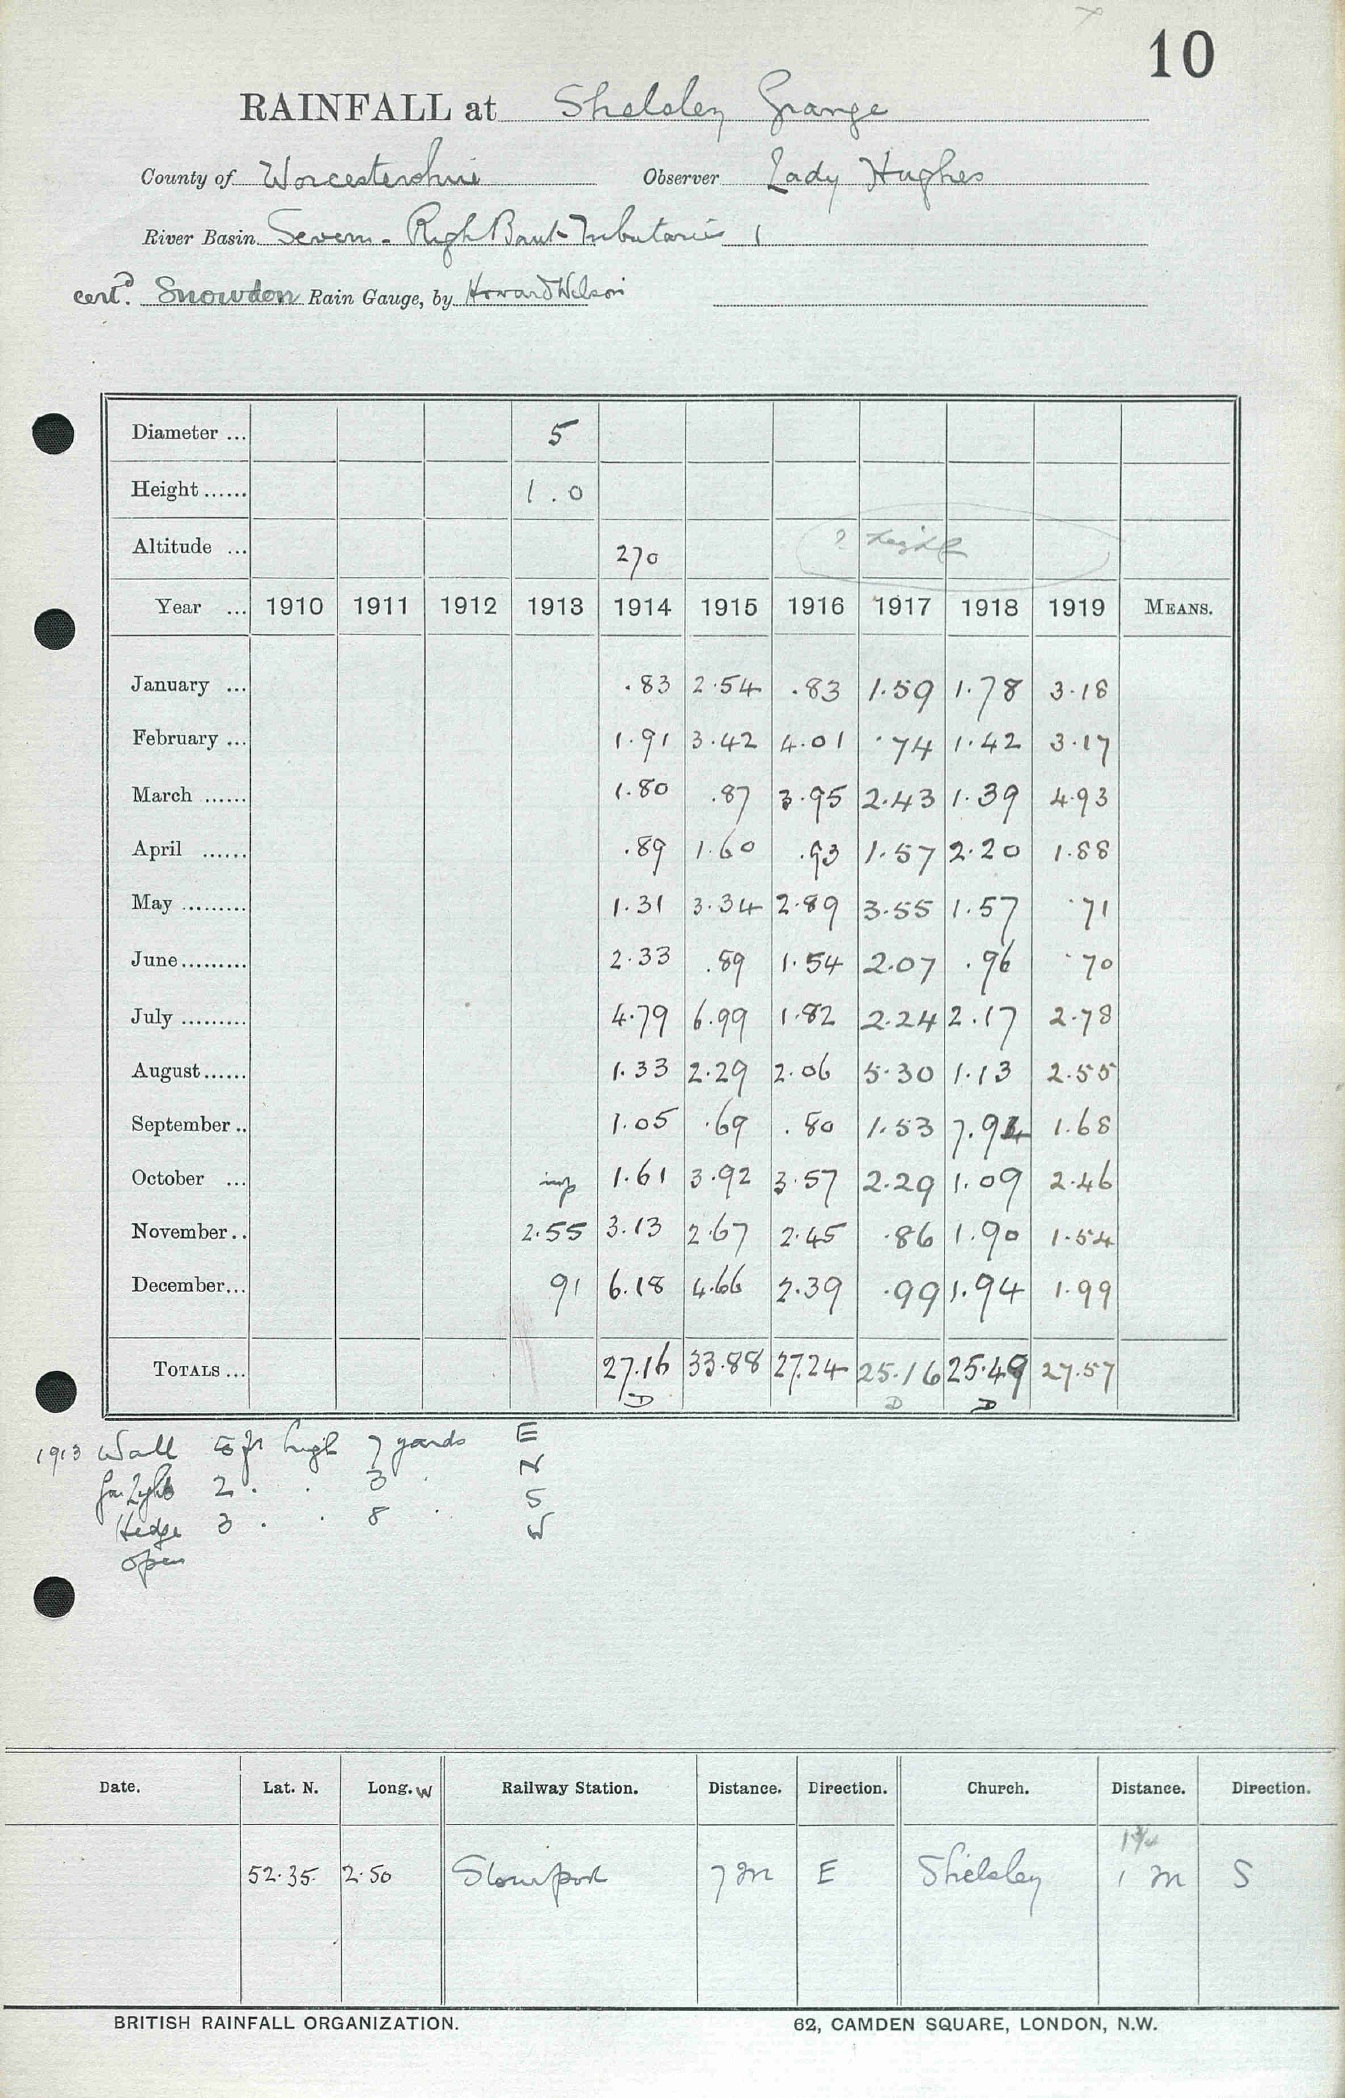 10
RAINFALL at Shelsley Grange
County of Worcestershire Observer Lady Hughes
River Basin Severn - Right Bank Tributaries 1
cert.d Snowdon Rain Gauge, by Howard Wilson
Diameter ... 5
Height ...... 1.0
Altitude ... 270 ? height
Year ... 1910 1911 1912 1913 1914 1915 1916 1917 1918 1919 MEANS.
January ... .83 2.54 .83 1.59 1.78 3.18
February ... 1.91 3.42 4.01 .74 1.42 3.17
March ...... 1.80 .87 3.95 2.43 1.39 4.93
April ...... .89 1.60 .93 1.57 2.20 1.88
May ......... 1.31 3.34 2.89 3.55 1.57 .71
June ......... 2.33 .89 1.54 2.07 .96 .70
July ......... 4.79 6.99 1.82 2.24 2.17 2.78
August ...... 1.33 2.29 2.06 5.30 1.13 2.55
September .. 1.05 .69 .80 1.53 7.94 1.68
October ... imp 1.61 3.92 3.57 2.29 1.09 2.46
November .. 2.55 3.13 2.67 2.45 .86 1.90 1.54
December ... 91 6.18 4.66 2.39 .99 1.94 1.99
TOTALS ... 27.16 33.88 27.24 25.16 25.49 27.57
D D D
1913 Wall ft high 7 yards E
2 . . 3 . N
Hedge 3 . . 8 . S
open W
Date. Lat. N. Long. W Railway Station. Distance. Direction. Church. Distance. Direction.
1 3/4
52.35. 2.50 Stourport 7 m E Shelsley 1 m S
BRITISH RAINFALL ORGANIZATION. 62, CAMDEN SQUARE, LONDON, N.W.